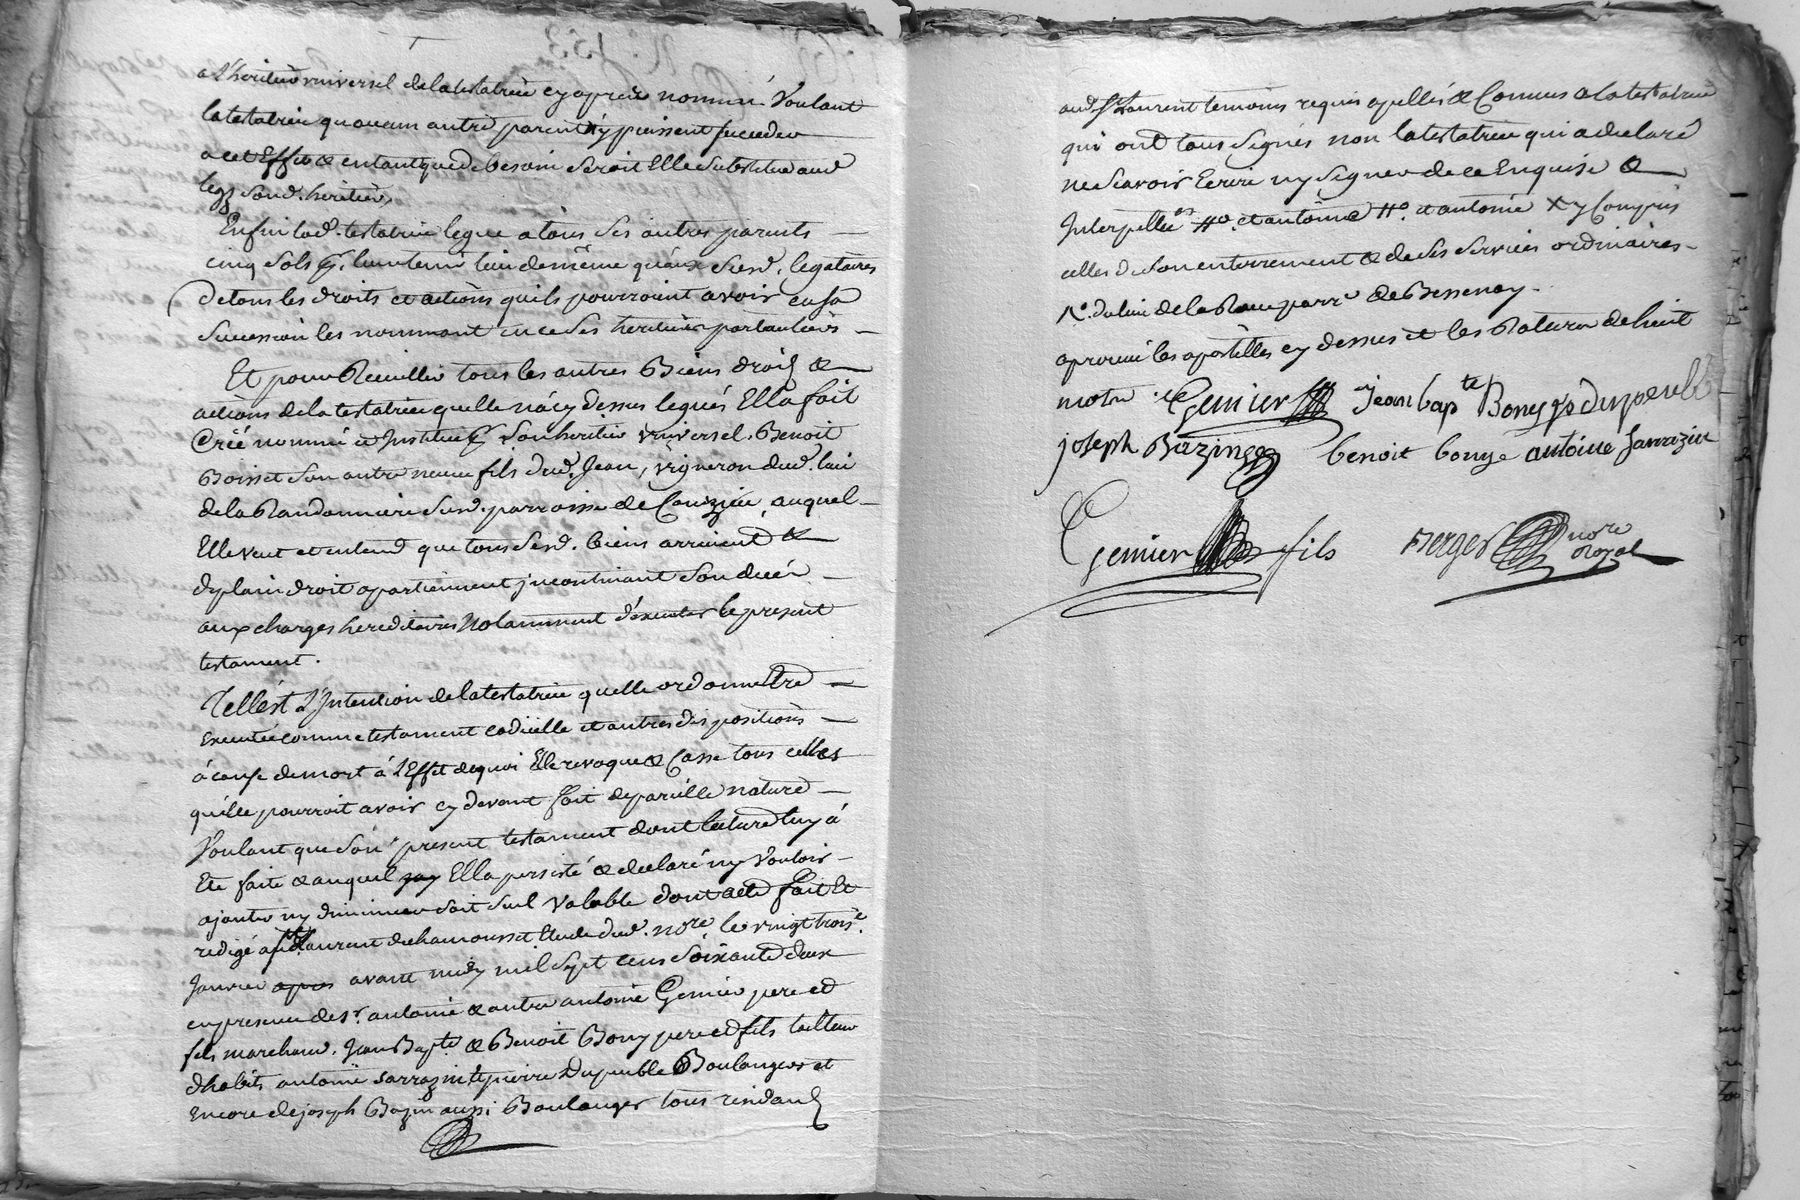 a L'heritier universel de la testatrice cy aprés nommé Voulant
la testatrice qu'aucun autre parent n'y puissent succeder
a cet Effet & en tant que de besoin seroit Elle substitue aud.
legs sond. heritier,
Enfin lad. testatrice legue a tous ses autres parents
cinq sols leur tenir lieu de même qu'aux susd. legataires
de tous les droits et actions quils pourroient avoir en sa
succession les nommant en ce ses heritiers particuliers
Et pour Recuillir tous les autres Biens droits &
actions de la testatrice quelle n'a cy dessus legués Ella fait
Créé nommé et Institué Son heritier universel. Benoit
Boisset son autre neveu fils dud. Jean, vigneron dud. lieu
de la Randonniere susd. parroisse de Courzieu, auquel
Elle veut et entend que tous sesd. biens arrivent &
de plain droit apartiennent jncontinant son decés
aux charges hereditaires Notamment d'executer le present
testament.
Telle est L'Intention de la testatrice quelle ordonne Etre
Executée comme testament codicille et autres dispositions
á cause de mort á L'Effet de quoi Elle revoque & Casse tous celles
qu'elle pourroit avoir cy devant fait de pareille nature
Voulant que son present testament dont lecture luy á
Eté faite & auquel Ella persisté & declaré ny vouloir
ajouter ny diminuer soit seul Valable dont acte fait Et
redigé a St. Laurent de chamousset Etude dud. nore. le vingt trois.e
Janvier apres avant midy mil sept cens soixante deux
en presence de sr. antoine & autre antoine Gemier pere et
fils marchand. Jean Bapte. & Benoit Bony pere et fils tailleur
d'habits antoine sarrazin & pierre Dupeuble Boulangers et
Encore de joseph Bazin aussi Boulanger tous residants
aud. St. Laurent temoins requis apellés & Connus a la testatrice
qui ont tous signés non la testatrice qui a declaré
ne scavoir Ecrire ny signer de ce Enquise &
Interpellée et antoine et antoine X y compris
celles de son enterrement & de ses services ordinaires
du lieu de la parre. de Bessenay.
aprouvé les apostilles cy dessus et les Rature de huit
motn. Gemier jean bapte Bony p Dupeuble
joseph Bazin benoit bonye antoine Sarrazin
Gemier fils Berger nore
Royal